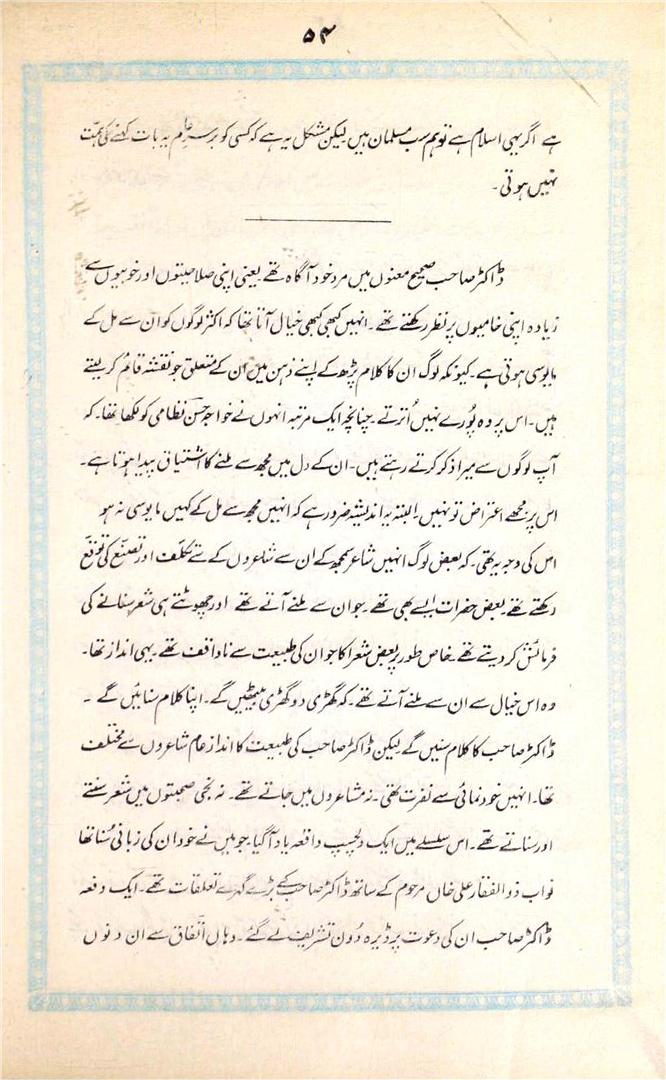 ۵۴
ہے اگر یہی اسلام ہے تو ہم سب مسلمان ہیں لیکن مشکل یہ ہے کہ کسی کو برسرِ عام یہ بات کہنے کی ہمت
نہیں ہوتی۔
ڈاکٹر صاحب صحیح معنوں میں مرد خود آگاہ تھے یعنی اپنی صلاحیتوں اور خوبیوں سے
زیادہ اپنی خامیوں پر نظر رکھتے تھے۔ انہیں کبھی کبھی خیال آتا تھا کہ اکثر لوگوں کو ان سے مل کے
مایوسی ہوتی ہے۔ کیونکہ لوگ ان کا کلام پڑھ کے اپنے ذہن میں ان کے متعلق جو نقشہ قائم کر لیتے
ہیں۔ اس پر وہ پُورے نہیں اُترتے۔ چنانچہ ایک مرتبہ انہوں نے خواجہ حسن نظامی کو لکھا تھا۔ کہ
آپ لوگوں سے میرا ذکر کرتے رہتے ہیں۔ ان کے دل میں مجھ سے ملنے کا اشتیاق پیدا ہوتا ہے۔
اس پر مجھے اعتراض تو نہیں۔ البتہ یہ اندیشہ ضرور ہے کہ انہیں مجھ سے مل کے کہیں مایوسی نہ ہو
اس کی وجہ یہ تھی۔ کہ بعض لوگ انہیں شاعر سمجھ کے ان سے شاعروں کے سے تکلّف اور تصنّع کی توقع
رکھتے تھے۔ بعض حضرات ایسے بھی تھے۔ جو ان سے ملنے آتے تھے اور چھوٹتے ہی شعر سنانے کی
فرمائش کر دیتے تھے۔ خاص طور پر بعض شعرا کا جو ان کی طبیعت سے ناواقف تھے۔ یہی انداز تھا۔
وہ اس خیال سے ان سے ملنے آتے تھے۔ کہ گھڑی دو گھڑی بیٹھیں گے۔ اپنا کلام سنائیں گے۔
ڈاکٹر صاحب کا کلام سنیں گے لیکن ڈاکٹر صاحب کی طبیعت کا انداز عام شاعروں سے مختلف
تھا۔ انہیں خود نمائی سے نفرت تھی۔ نہ مشاعروں میں جاتے تھے۔ نہ نجی صحبتوں میں شعر سنتے
اور سناتے تھے۔ اس سلسلے میں ایک دلچسپ واقعہ یاد آ گیا۔ جو میں نے خود ان کی زبانی سُنا تھا
نواب ذوالفقار علی خاں مرحوم کے ساتھ ڈاکٹر صاحب کے بڑے گہرے تعلقات تھے۔ ایک دفعہ
ڈاکٹر صاحب ان کی دعوت پر ڈیرہ دُون تشریف لے گئے۔ وہاں اتّفاق سے ان دنوں